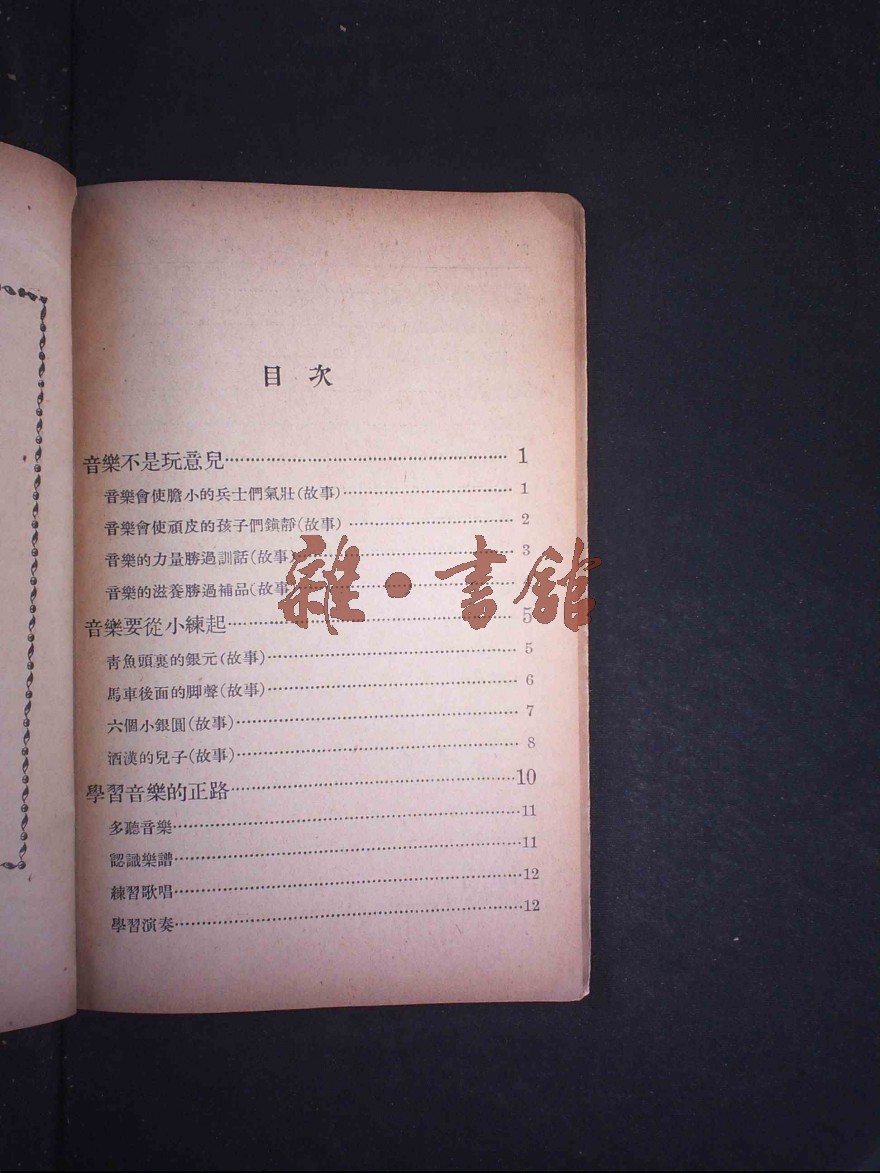 目次
音樂不是玩意兒……1
音樂會使膽小的兵士們氣壯(故事)……1
音樂會使頑皮的孩子們鎮靜(故事)……2
音樂的力量勝過訓話(故事)……3
音樂的滋養勝過補品(故事)……
雜·書舘
音樂要從小練起……5
青魚頭裏的銀元(故事)……5
馬車後面的脚聲(故事)……6
六個小銀圓(故事)……7
酒漢的兒子(故事)……8
學習音樂的正路……10
多聽音樂……11
認識樂譜……11
練習歌唱……12
學習演奏……12